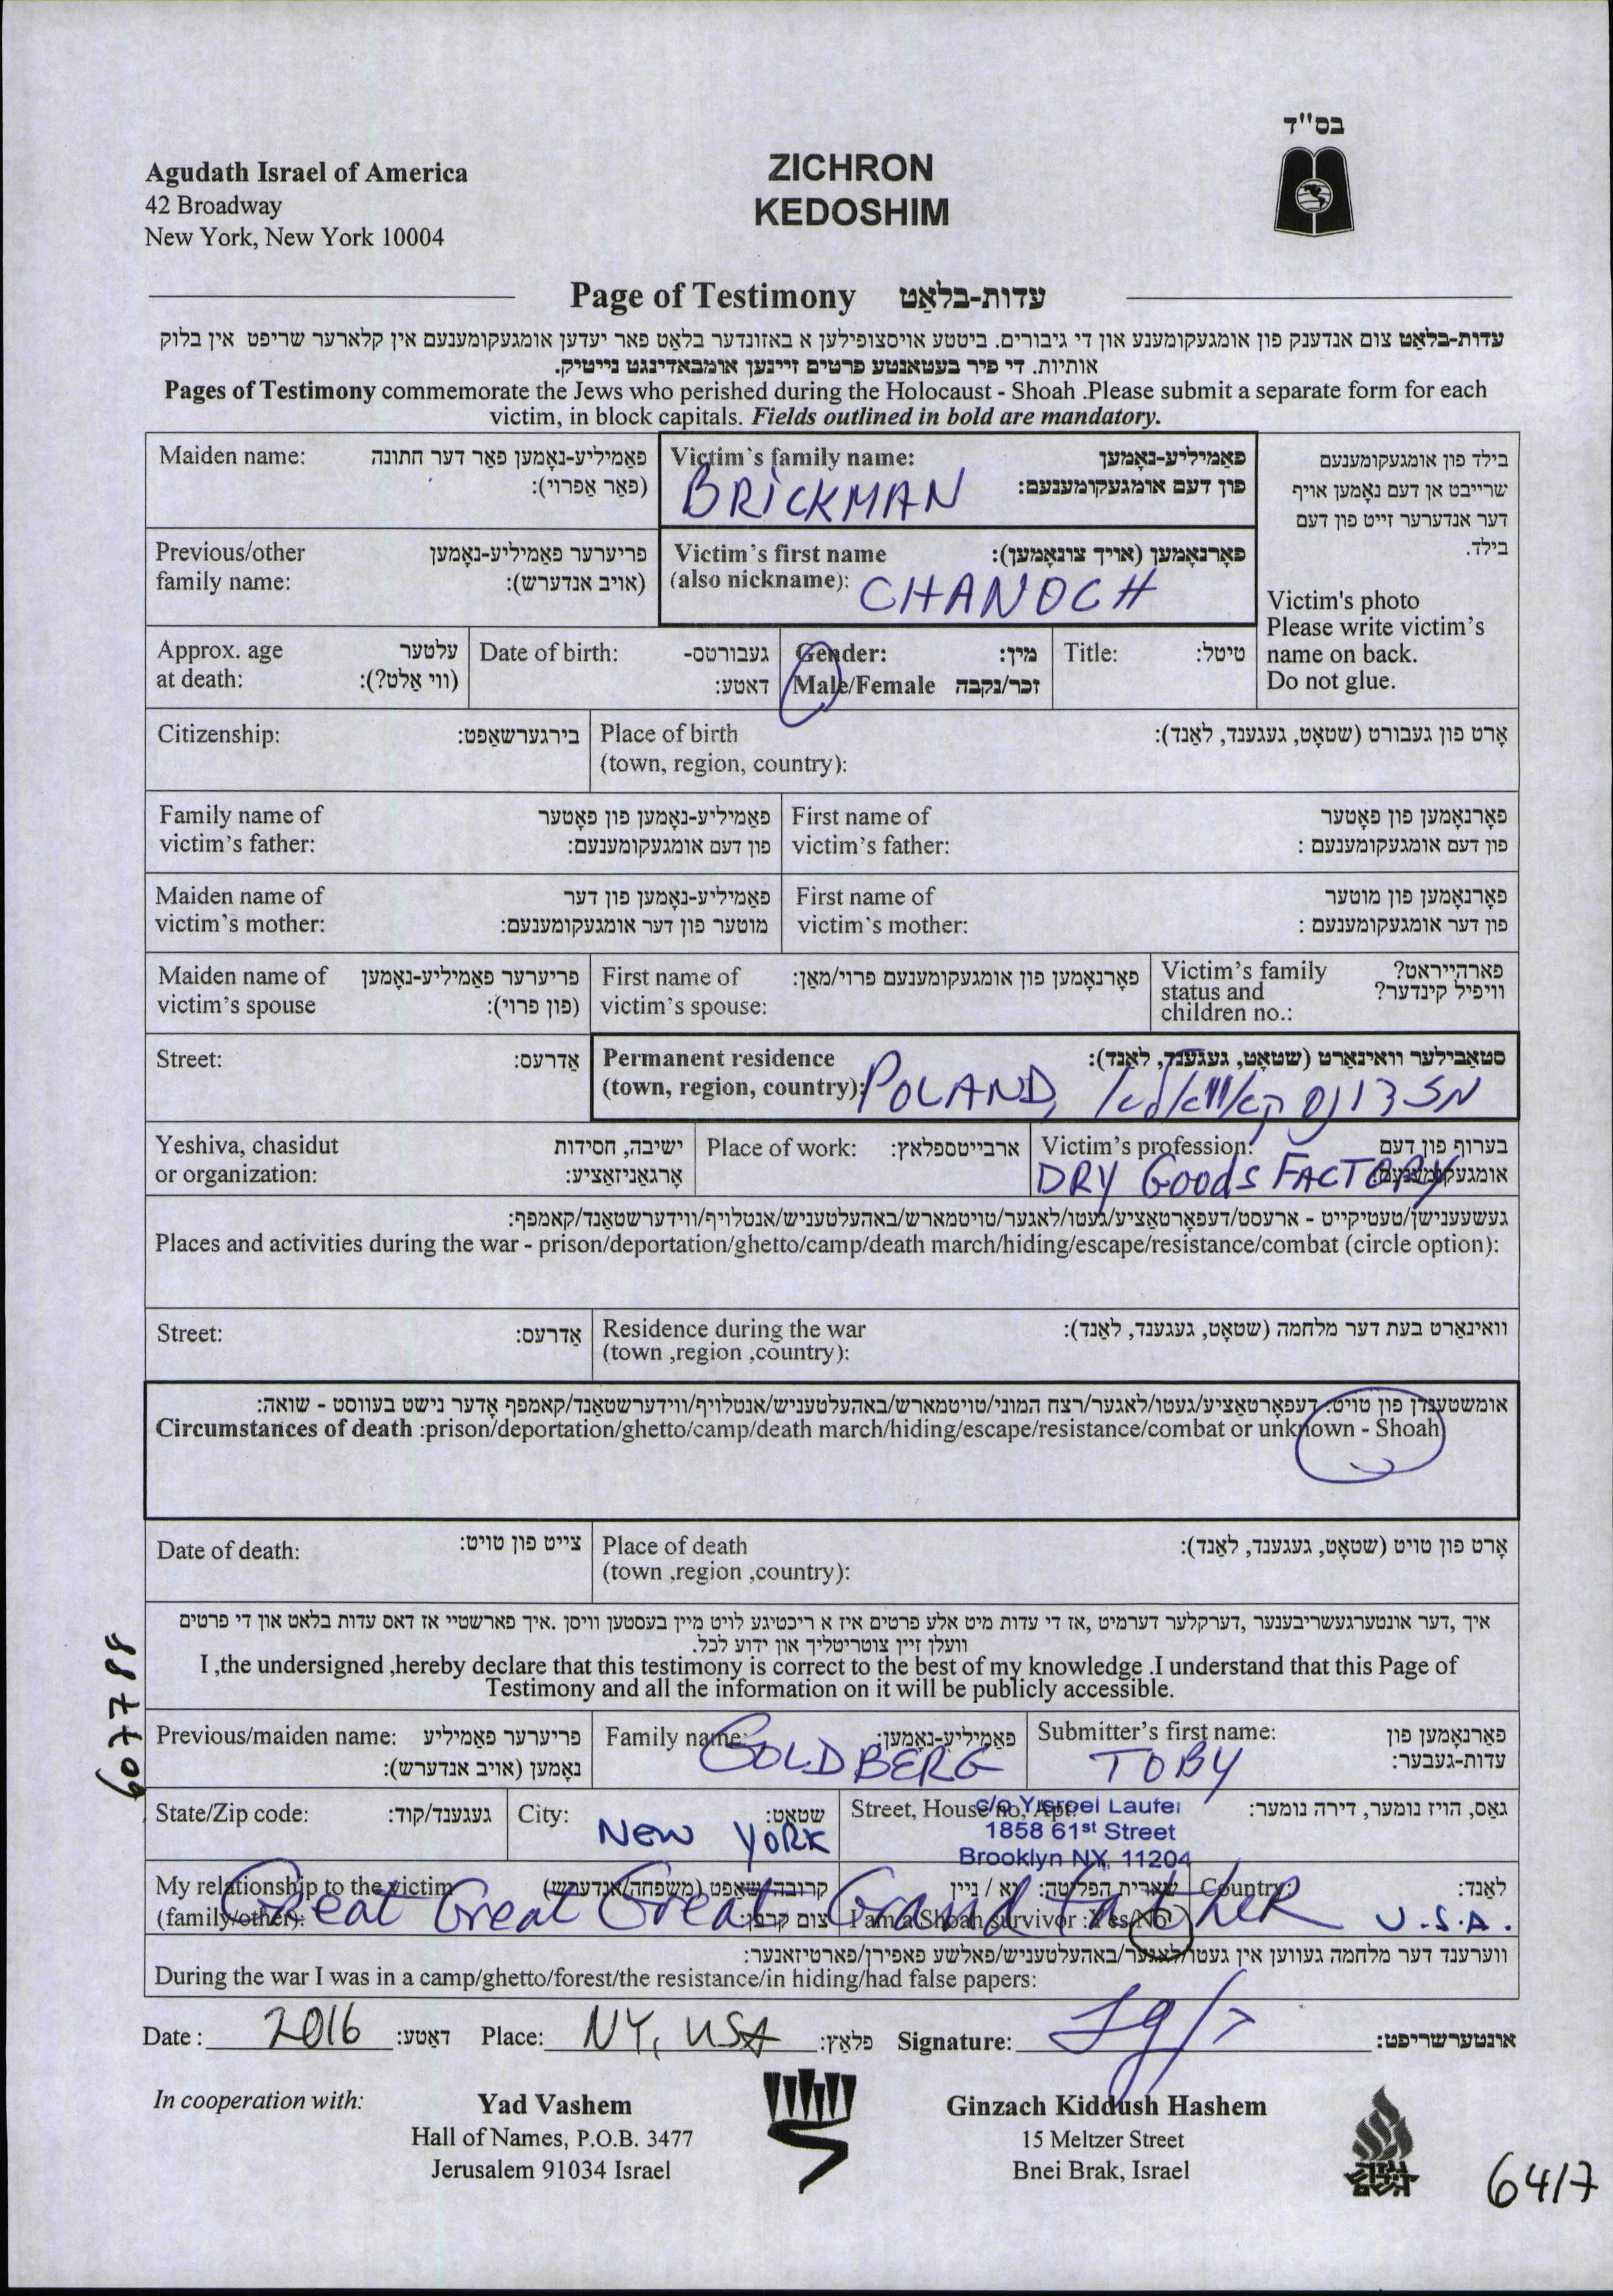 בס"ד
Agudath Israel of America
42 Broadway
New York, New York 10004
ZICHRON
KEDOSHIM
Page of Testimony עדות-בלאַט
עדות-בלאַט צום אנדענק פון אומגעקומענע און די גיבורים. ביטטע אויסצופילען א באזונדער בלאַט פאר יעדען אומגעקומענעם אין קלארער שריפט אין בלוק
אותיות. די פיר בעטאנטע פרטים זיינען אומבאדינגט נייטיק.
Pages of Testimony commemorate the Jews who perished during the Holocaust - Shoah .Please submit a separate form for each
victim, in block capitals. Fields outlined in bold are mandatory.
Maiden name: פאַמיליע-נאָמען פאר דער חתונה
(פאַר אַפרוי):
Victim's family name: פאַמיליע-נאָמען
פון דעם אומגעקומענעם:
BRICKMAN
בילד פון אומגעקומענעם
שרייבט אן דעם נאָמען אויף
דער אנדערער זייט פון דעם
בילד.
Victim's photo
Please write victim's
name on back.
Do not glue.
Previous/other פריערער פאַמיליע-נאָמען
family name: (אויב אנדערש):
Victim's first name פאָרנאָמען (אויך צונאָמען):
(also nickname): CHANOCH
Approx. age עלטער
at death: (ווי אַלט?):
Date of birth: געבורטס-
דאטע:
Gender: מין:
Male/Female זכר/נקבה
Title: טיטל:
Citizenship: בירגערשאַפט:
Place of birth אָרט פון געבורט (שטאָט, געגענד, לאַנד):
(town, region, country):
Family name of פאַמיליע-נאָמען פון פאָטער
victim's father: פון דעם אומגעקומענעם:
First name of פאָרנאָמען פון פאָטער
victim's father: פון דעם אומגעקומענעם :
Maiden name of פאַמיליע-נאָמען פון דער
victim's mother: מוטער פון דער אומגעקומענעם:
First name of פאָרנאָמען פון מוטער
victim's mother: פון דער אומגעקומענעם :
Maiden name of פריערער פאַמיליע-נאָמען
victim's spouse (פון פרוי):
First name of פאָרנאָמען פון אומגעקומענעם פרוי/מאַן:
victim's spouse:
Victim's family פארהייראט?
status and וויפיל קינדער?
children no.:
Street: אַדרעס:
Permanent residence סטאַבילער וואינאַרט (שטאָט, געגענד, לאַנד):
(town, region, country): POLAND,
Yeshiva, chasidut ישיבה, חסידות
or organization: אָרגאַניזאַציע:
Place of work: ארבייטספלאץ:
Victim's profession: בערוף פון דעם
אומגעקומענעם:
DRY GOODS FACTORY
געשעענישן/טעטיקייט - ארעסט/דעפאָרטאַציע/געטו/לאגער/טויטמארש/באהעלטעניש/אנטלויף/ווידערשטאַנד/קאמפף:
Places and activities during the war - prison/deportation/ghetto/camp/death march/hiding/escape/resistance/combat (circle option):
Street: אַדרעס:
Residence during the war וואינאַרט בעת דער מלחמה (שטאָט, געגענד, לאַנד):
(town ,region ,country):
אומשטענדן פון טויט: דעפאָרטאַציע/געטו/לאגער/רצח המוני/טויטמארש/באהעלטעניש/אנטלויף/ווידערשטאַנד/קאמפף אָדער נישט בעווסט - שואה:
Circumstances of death :prison/deportation/ghetto/camp/death march/hiding/escape/resistance/combat or unknown - Shoah
Date of death: צייט פון טויט:
Place of death אָרט פון טויט (שטאָט, געגענד, לאַנד):
(town ,region ,country):
איך ,דער אונטערגעשריבענער ,דערקלער דערמיט ,אז די עדות מיט אלע פרטים איז א ריכטיגע לויט מיין בעסטען וויסן .איך פארשטיי אז דאס עדות בלאט און די פרטים
וועלן זיין צוטריטליך און ידוע לכל.
I ,the undersigned ,hereby declare that this testimony is correct to the best of my knowledge .I understand that this Page of
Testimony and all the information on it will be publicly accessible.
607788
Previous/maiden name: פריערער פאַמיליע
נאָמען (אויב אנדערש):
Family name: פאַמיליע-נאָמען:
GOLDBERG
Submitter's first name: פאַרנאָמען פון
עדות-געבער:
TOBY
State/Zip code: געגענד/קוד:
City: שטאָט:
NEW YORK
Street, House no, Apt: גאַס, הויז נומער, דירה נומער:
c/o Yisroel Laufer
1858 61st Street
Brooklyn NY, 11204
My relationship to the victim קרובה/שאַפט (משפחה/אנדערש)
(family/other): צום קרבן:
Great Great Great Grand Father
שארית הפליטה: יא / ניין
I am a Shoah survivor :Yes/No
Country: לאַנד:
U.S.A.
ווערענד דער מלחמה געווען אין געטו/לאגער/באהעלטעניש/פאלשע פאפירן/פארטיזאנער:
During the war I was in a camp/ghetto/forest/the resistance/in hiding/had false papers:
Date : 2016 דאַטע: Place: NY, USA פלאַץ: Signature: אונטערשריפט:
In cooperation with:
Yad Vashem
Hall of Names, P.O.B. 3477
Jerusalem 91034 Israel
Ginzach Kiddush Hashem
15 Meltzer Street
Bnei Brak, Israel
6417